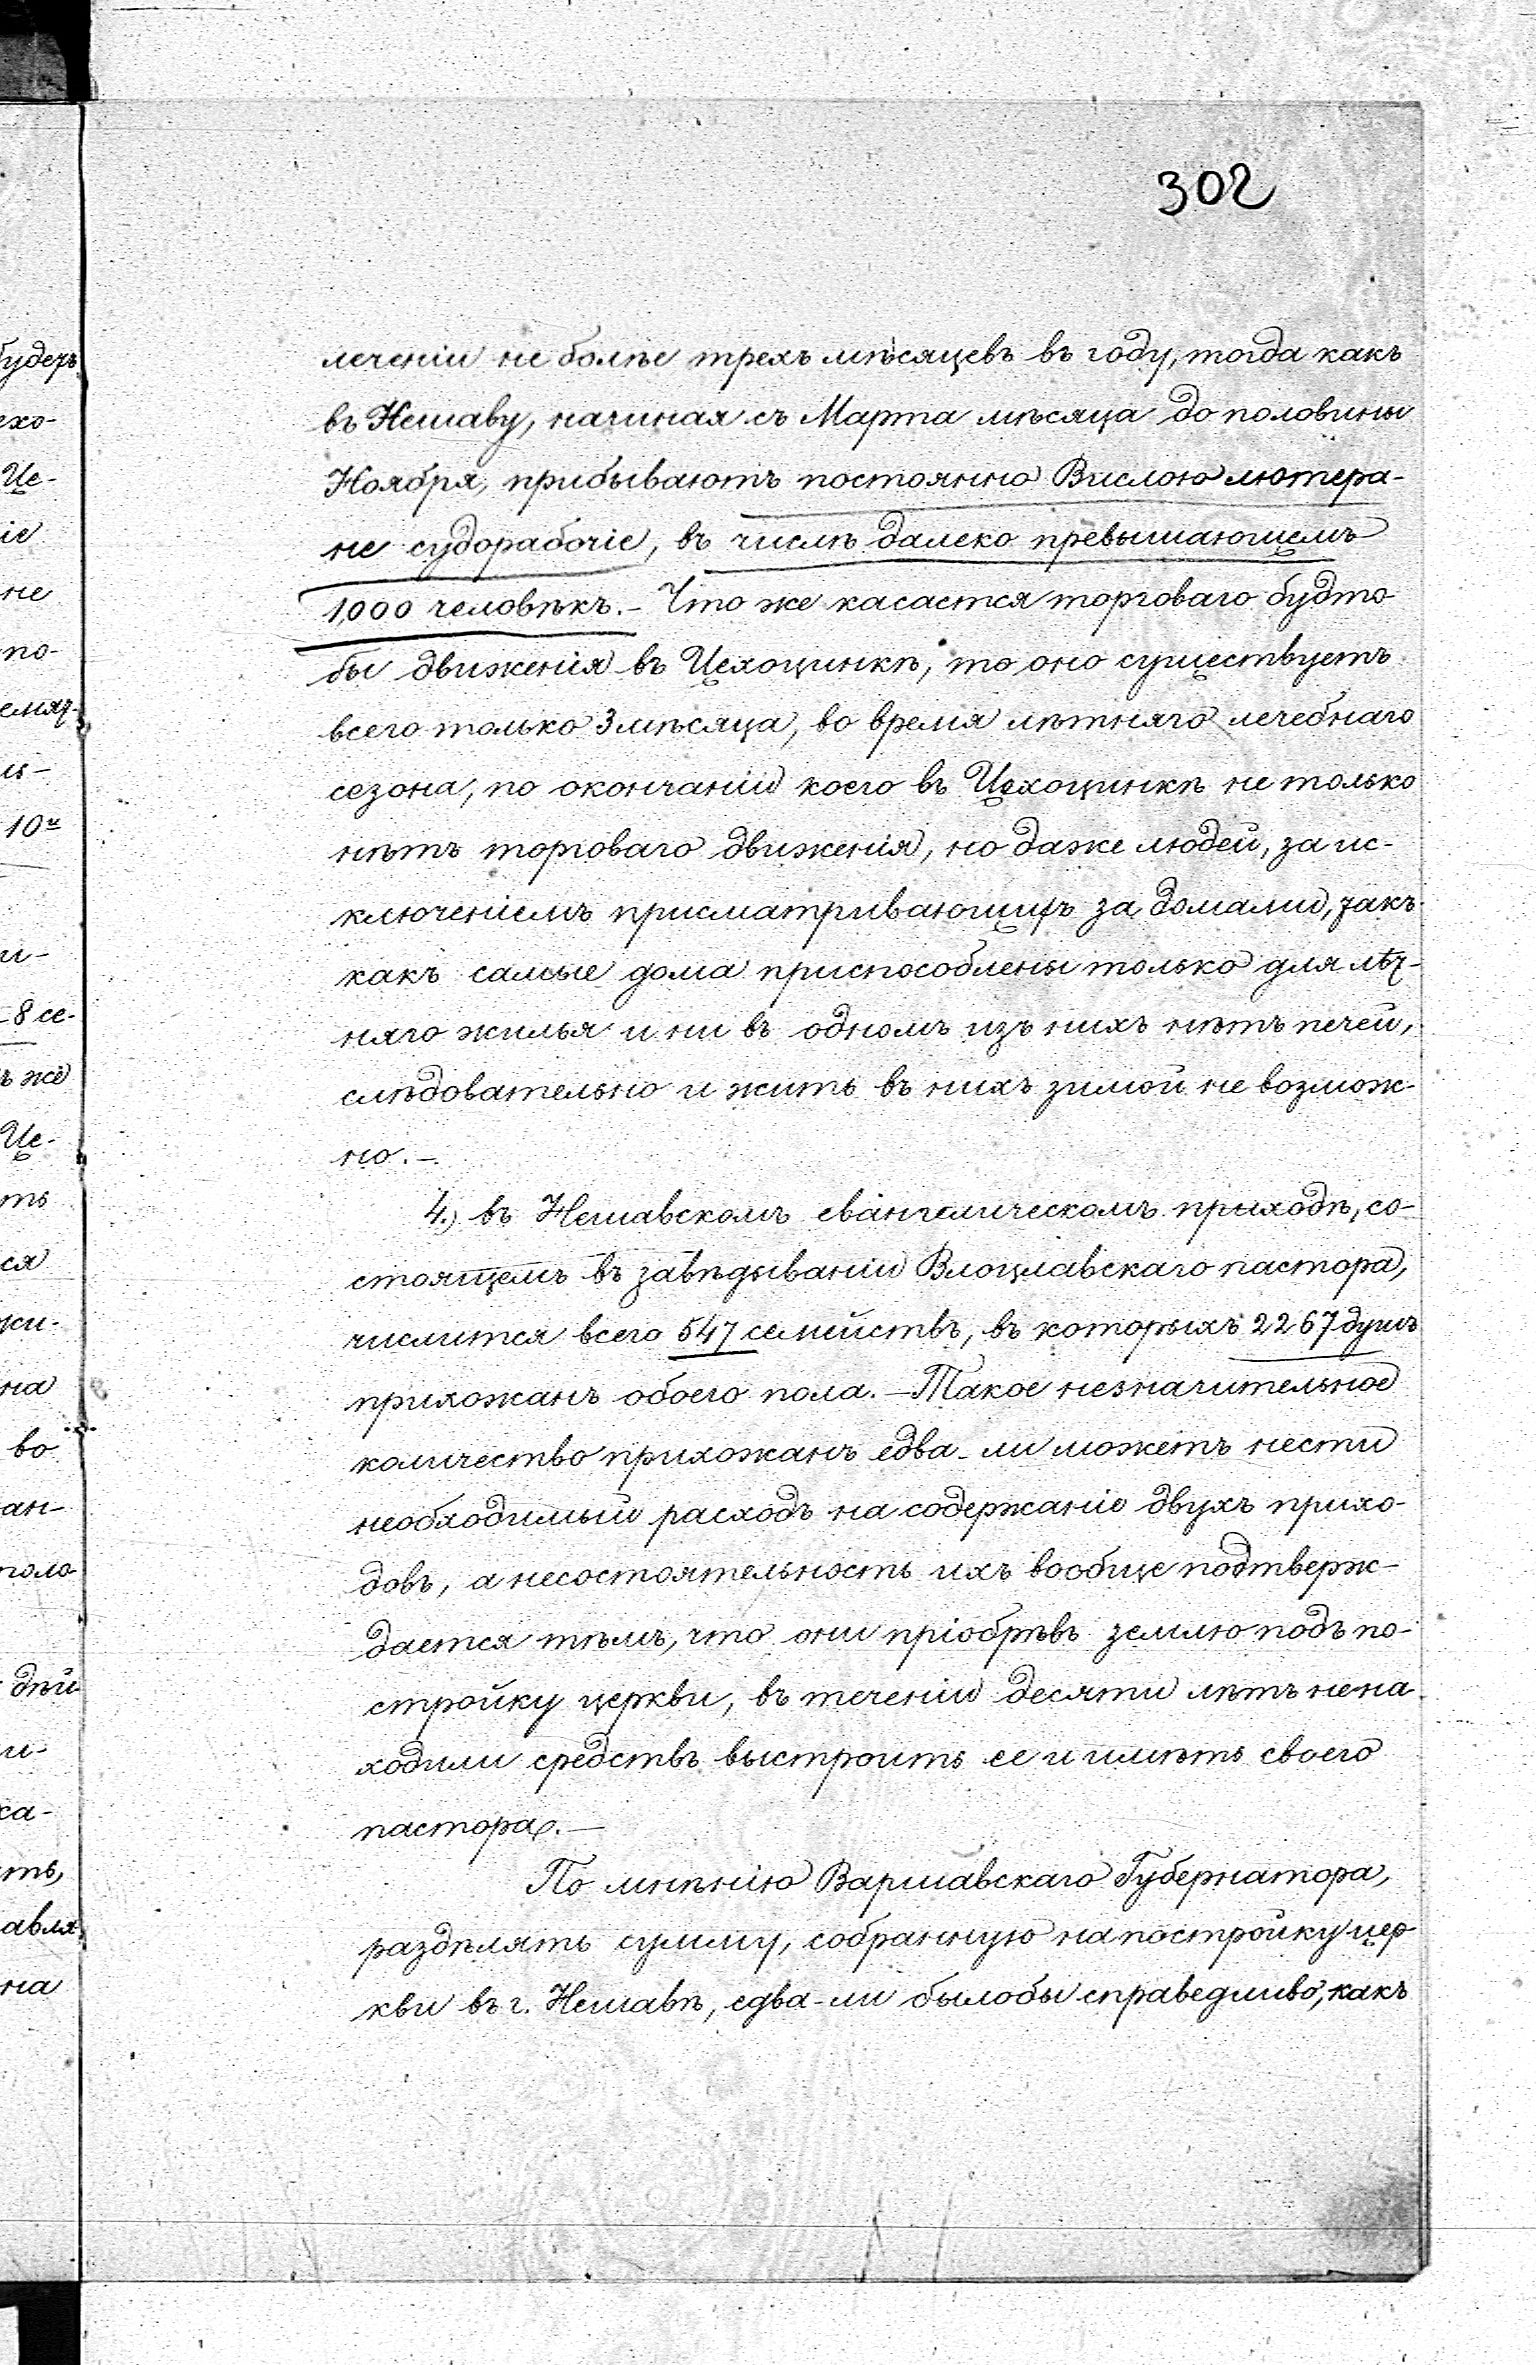 302
леченіи не болѣе трехъ мѣсяцевъ въ году, тогда какъ
въ Нешаву, начиная съ Марта мѣсяца до половины
Ноября, прибываютъ постоянно Вислою лютера-
не судорабочіе, въ числѣ далеко превышающемъ
1,000 человѣкъ.- Что же касается торговаго будто
бы движенія въ Цехоцинкѣ, то оно существуетъ
всего только 3 мѣсяца, во время лѣтняго лечебнаго
сезона, по окончаніи коего въ Цехоцинкѣ не только
нѣтъ торговаго движенія, но даже людей, за ис-
ключеніемъ присматривающихъ за домами, такъ
какъ самые дома приспособлены только для лѣт-
няго жилья и ни въ одномъ изъ нихъ нѣтъ печей,
слѣдовательно и жить въ нихъ зимой не возмож-
но.-
4.) въ Нешавскомъ евангелическомъ приходѣ, со-
стоящемъ въ завѣдываніи Влоцлавскаго пастора,
числится всего 547 семействъ, въ которыхъ 2267 душъ
прихожанъ обоего пола.- Такое незначительное
количество прихожанъ едва-ли можетъ нести
необходимый расходъ на содержаніе двухъ прихо-
довъ, а несостоятельность ихъ вообще подтверж-
дается тѣмъ, что они пріобрѣвъ землю подъ по-
стройку церкви, въ теченіи десяти лѣтъ не на
ходили средствъ выстроить ее и имѣть своего
пастора.-
По мнѣнію Варшавскаго Губернатора,
раздѣлять сумму, собранную на постройку цер
кви въ г. Нешавѣ, едва-ли было бы справедливо, какъ